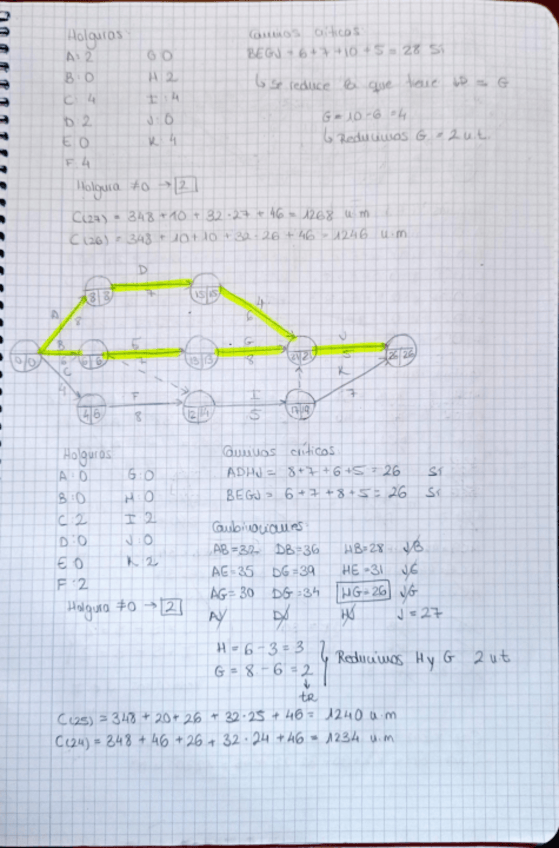 Holguras
A: 2 G: 0
B: 0 H: 2
C: 4 I: 4
D: 2 J: 0
E: 0 K: 4
F: 4
Holgura ≠0 → 2
Caminos críticos
BEGJ = 6+7+10+5 = 28 Sí
↳ se reduce la que tiene = G
G = 10-6 = 4
↳ Reducimos G = 2 u.t
C(27) = 348 + 10 + 32·27 + 46 = 1268 u.m
C(26) = 348 + 10+10 + 32·26 + 46 = 1246 u.m
D
8|8 7 15|15
A 8 4 6
B G 8 J 5
0|0 26|26
C 4 K 7
F 8 I 5
Holguras
A: 0 G: 0
B: 0 H: 0
C: 2 I: 2
D: 0 J: 0
E: 0 K: 2
F: 2
Holgura ≠0 → 2
Caminos críticos
ADHJ = 8+7+6+5 = 26 Sí
BEGJ = 6+7+8+5 = 26 Sí
Combinaciones
AB=32 DB=36 HB=28 JB
AE=35 DG=39 HE=31 JG
AG=30 DG=34 HG=26 JG
AJ DJ HJ J=27
H = 6-3 = 3
G = 8-6 = 2
Reducimos H y G 2 ut
↓
C(25) = 348 + 20 + 26 + 32·25 + 46 = 1240 u.m
C(24) = 348 + 46 + 26 + 32·24 + 46 = 1234 u.m